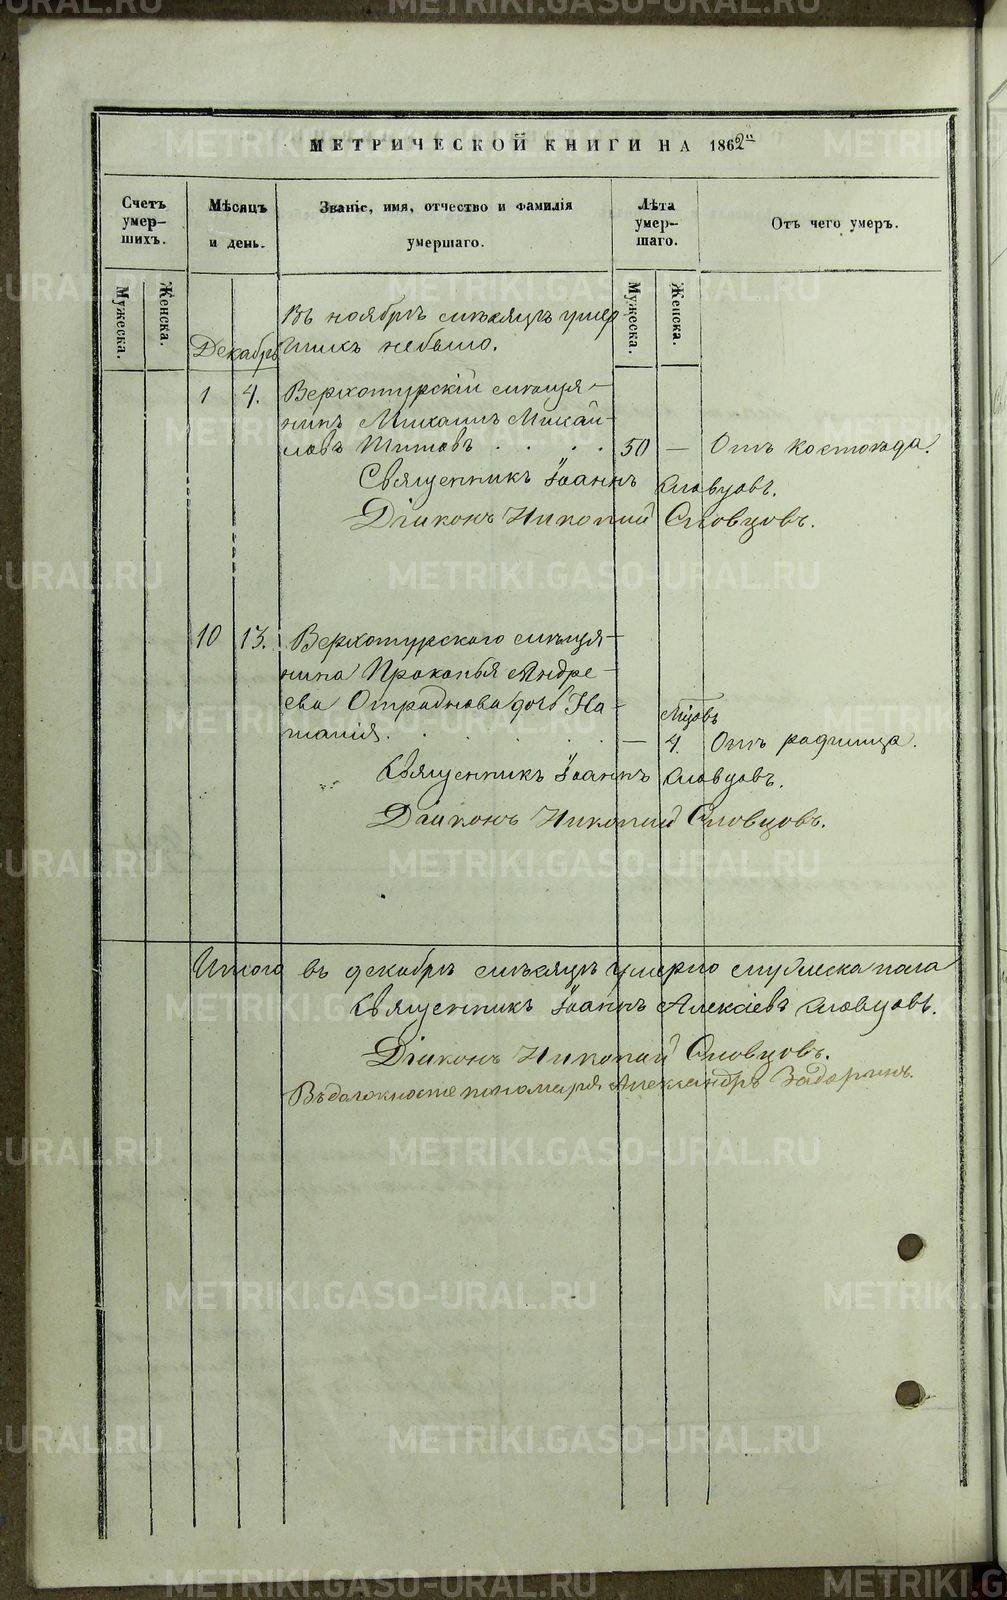 МЕТРИЧЕСКОЙ КНИГИ НА 1862й
Счетъ умер-шихъ.
Мѣсяцъ и день.
Званіе, имя, отчество и фамилія умершаго.
Лѣта умер-шаго.
Отъ чего умеръ.
Мужеска.
Женска.
Мужеска.
Женска.
Въ ноябрѣ мѣсяцѣ умер-
Декабрь шихъ небыло.
1 4. Верхотурскій мѣщя-
нинъ Михаилъ Михаи-
ловъ Титовъ . . . . 50 — Отъ костоѣда.
Священникъ Іоаннъ Словцовъ.
Діиконъ Никопий Словцовъ.
10 13. Верхотурского мѣщя-
нина Прокопья Андре-
ева Отраднова дочь На-
талія. . . . . — 4. Мцовъ Отъ родимца.
Священникъ Іоаннъ Словцовъ.
Діиконъ Никопий Словцовъ.
Итого въ декабрѣ мѣсяцѣ умерло мужеска пола
Священникъ Іоаннъ Алексіевъ Словцовъ.
Діиконъ Никопий Словцовъ.
Въ должносте пономаря Александръ Задоринъ.
METRIKI.GASO-URAL.RU